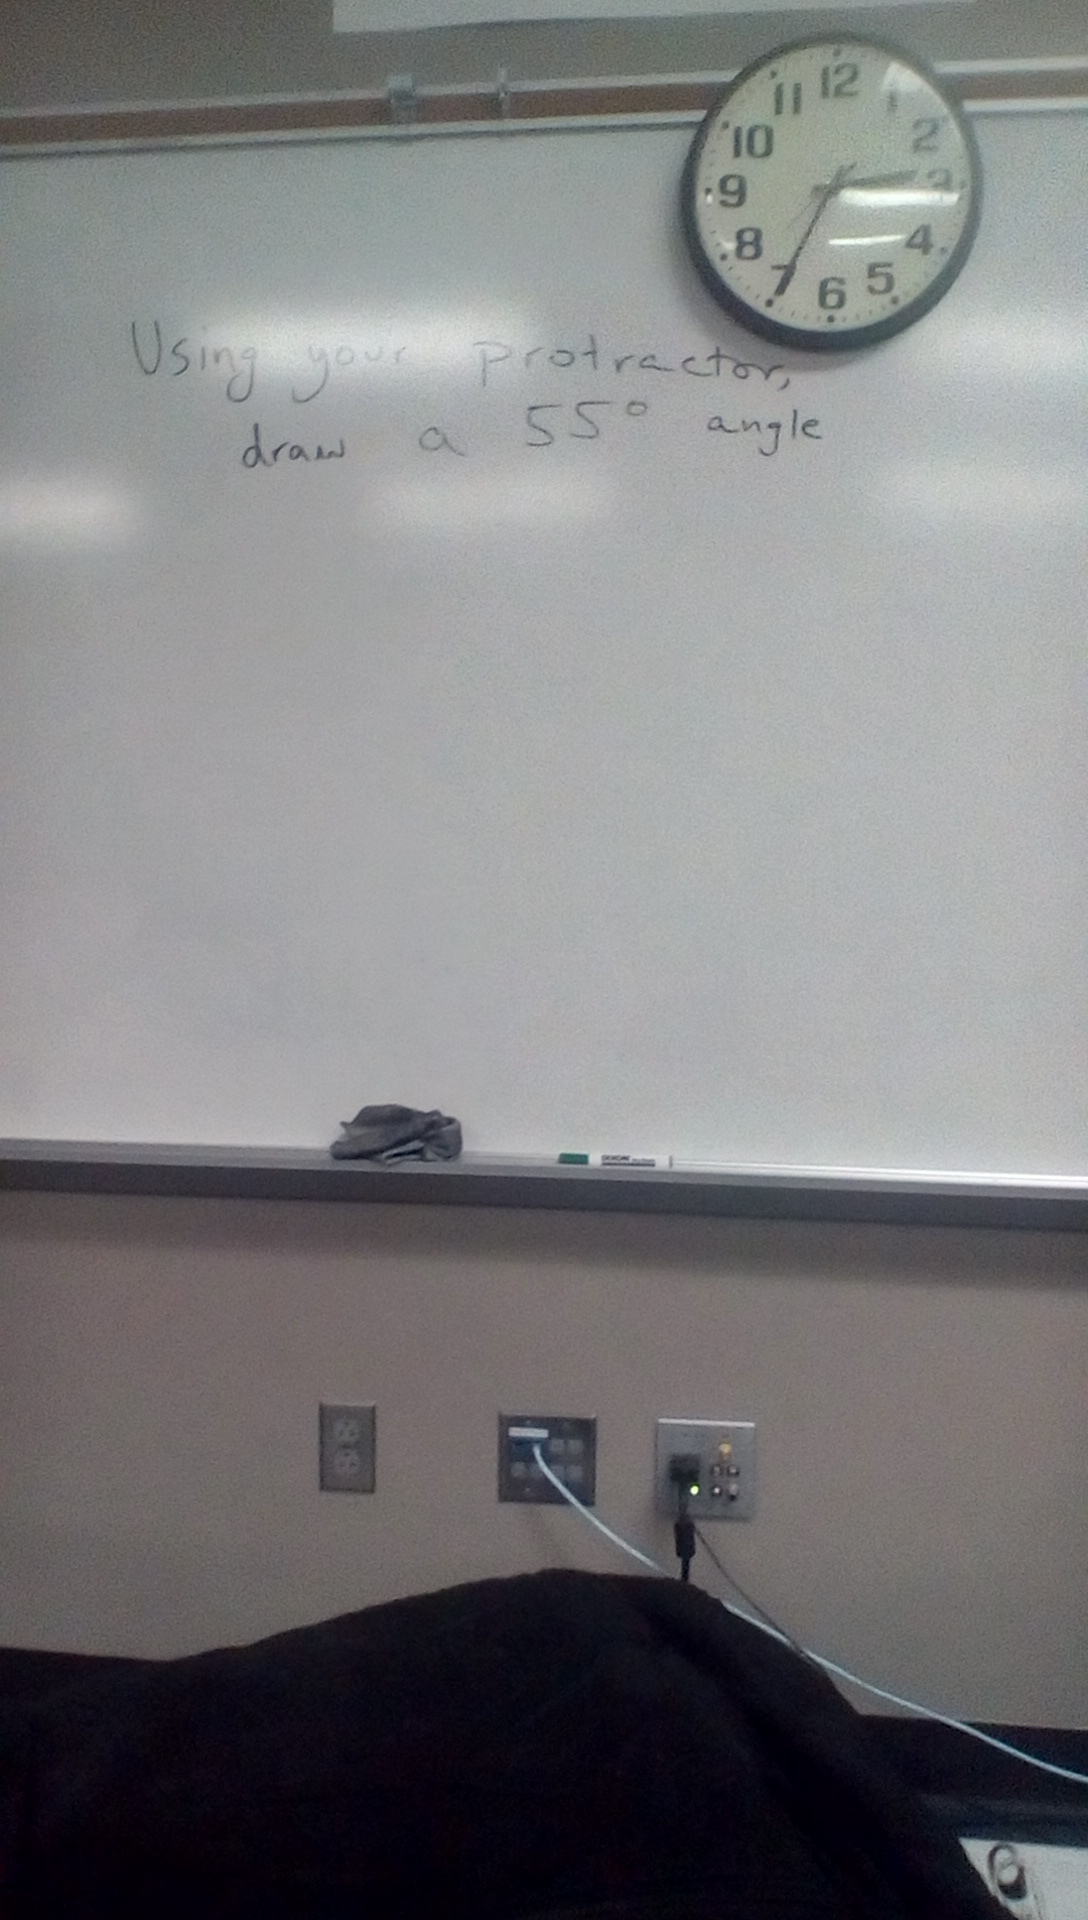 12
11
1
10
2
9
3
8
4
7
5
6
Using your protractor,
draw a 55° angle